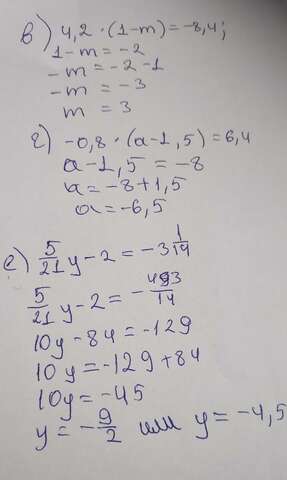 в) 4,2 · (1-m) = -8,4;
1-m = -2
-m = -2-1
-m = -3
m = 3
г) -0,8 · (a-1,5) = 6,4
a-1,5 = -8
a = -8+1,5
a = -6,5
е) 5/21 y - 2 = -3 1/14
5/21 y - 2 = - 43/14
10y - 84 = -129
10y = -129 + 84
10y = -45
y = - 9/2 или y = -4,5